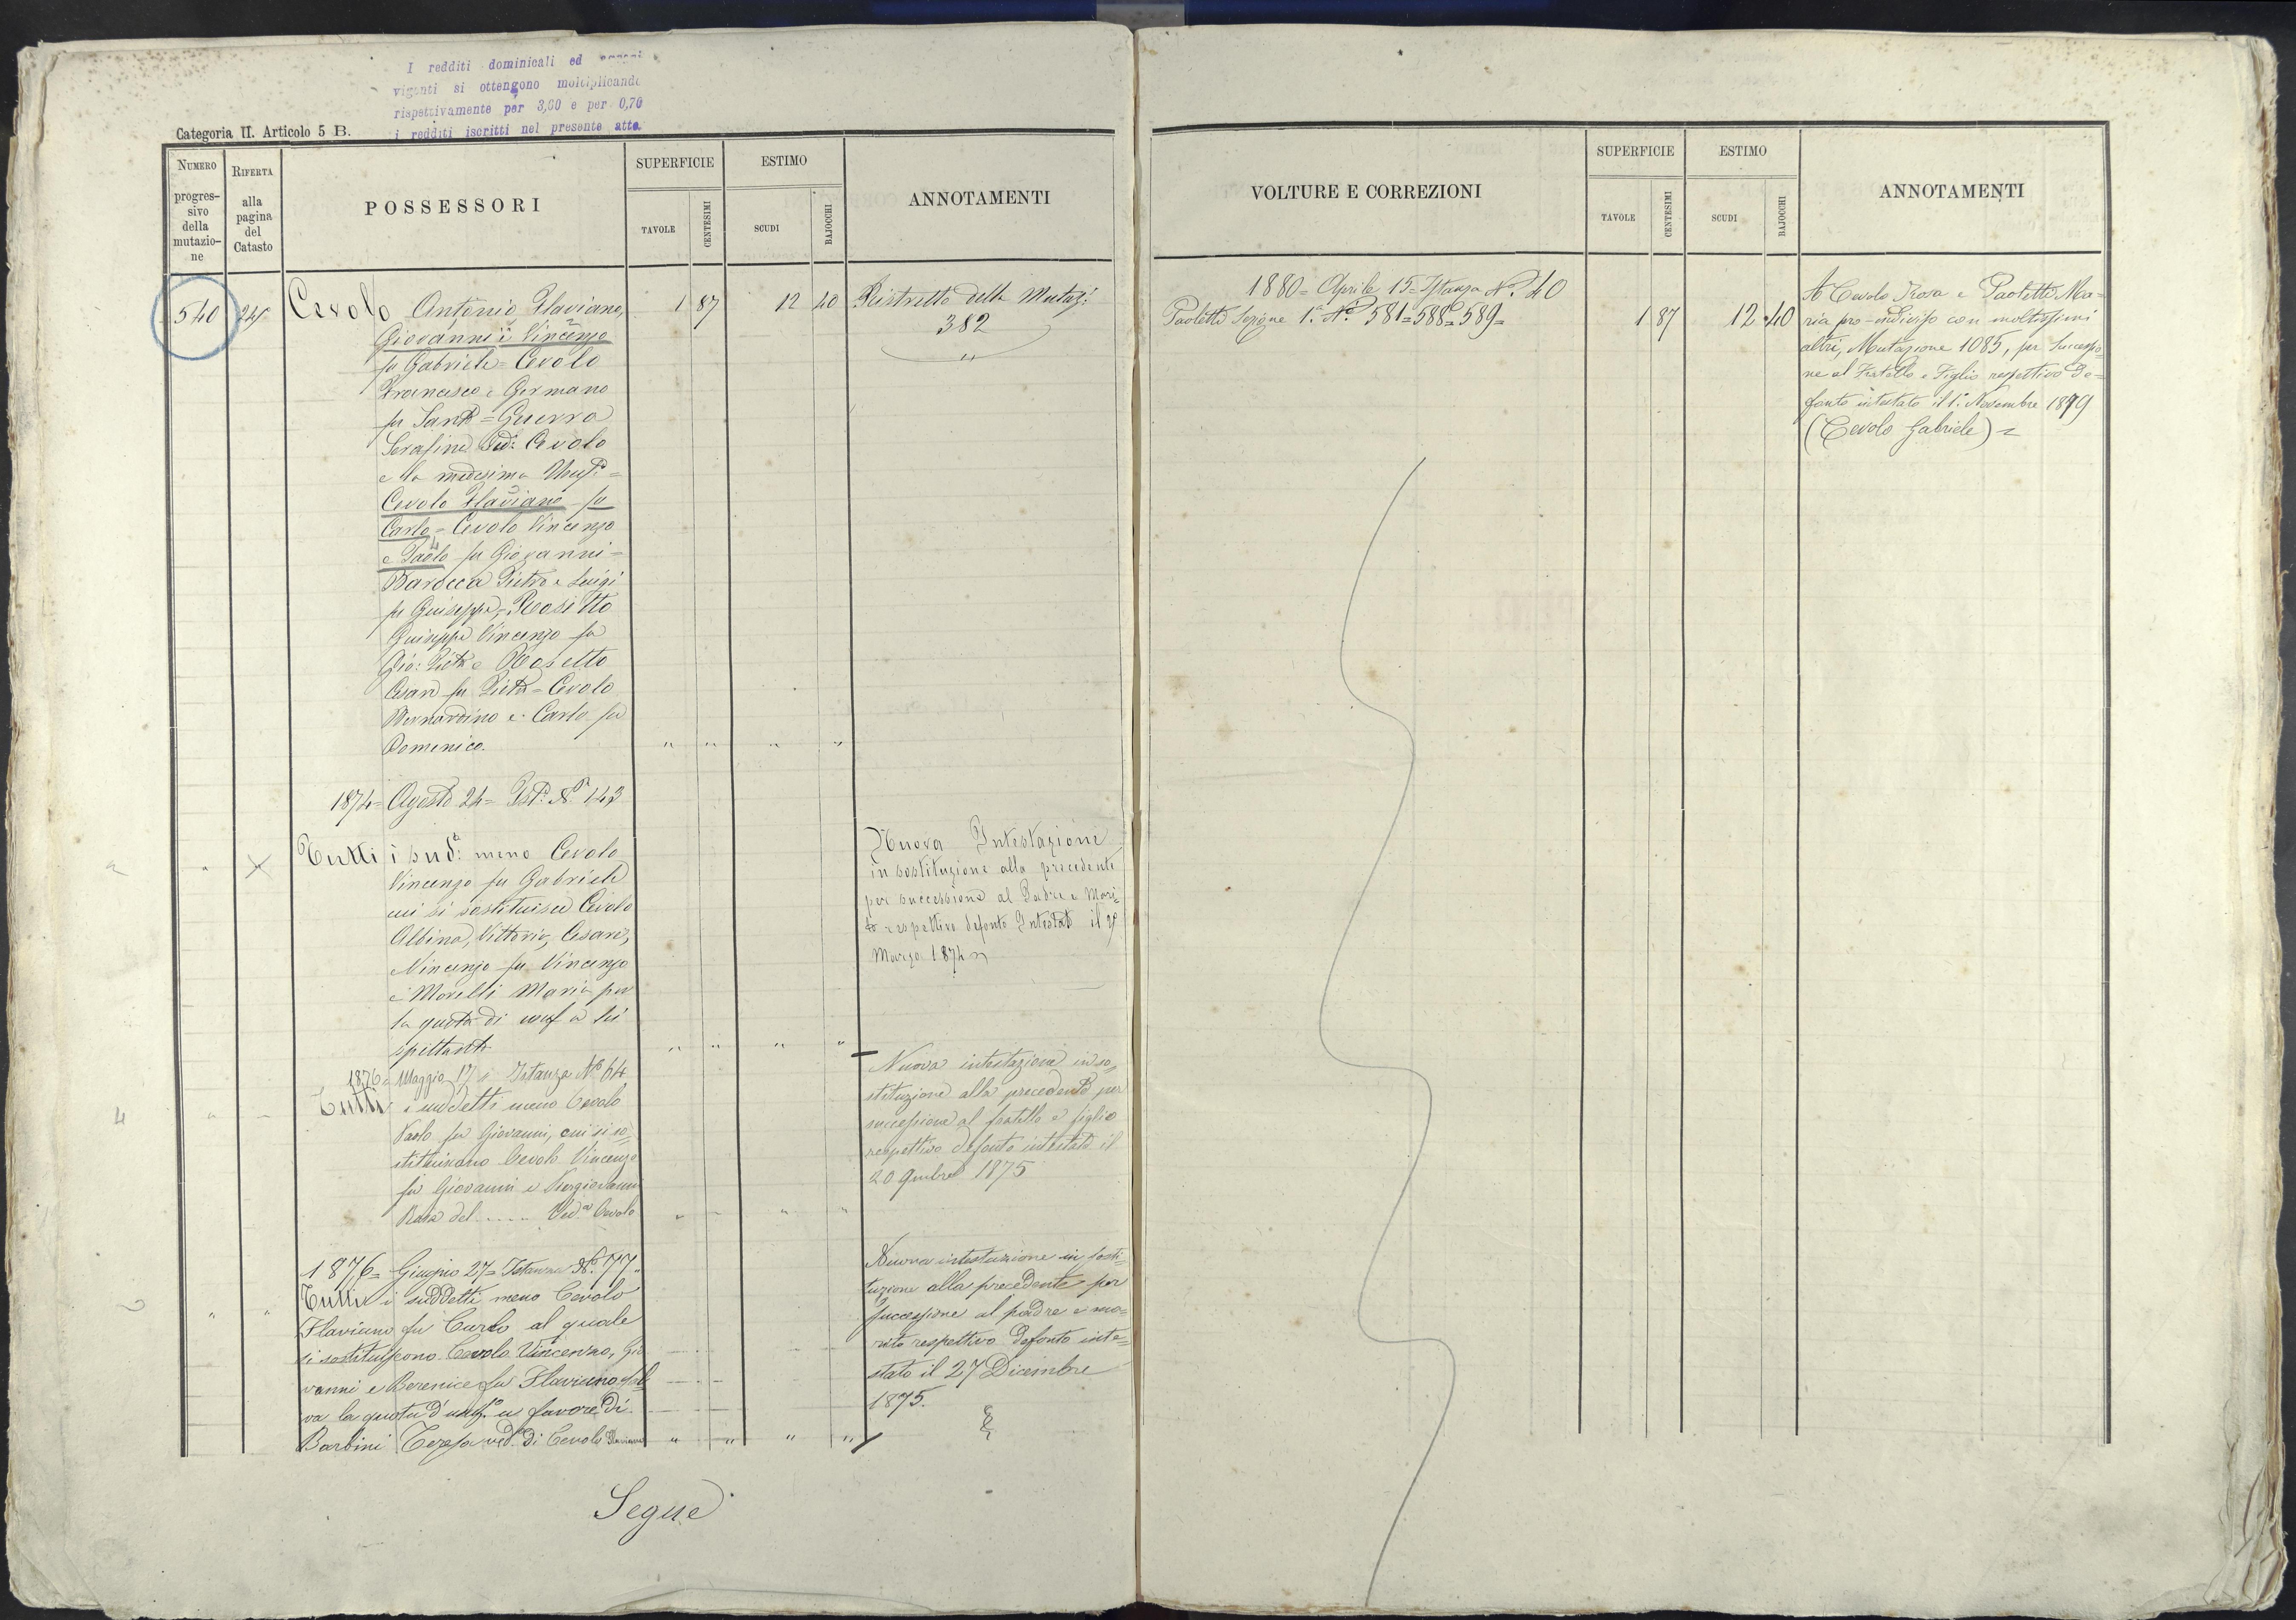 I redditi dominicali ed
vigenti si ottengono moltiplicando
rispettivamente per 3,00 e per 0,70
i redditi iscritti nel presente atto
Categoria II. Articolo 5 B.
NUMERO progressivo della mutazione
RIFERTA alla pagina del Catasto
POSSESSORI
SUPERFICIE
TAVOLE
CENTESIMI
ESTIMO
SCUDI
BAJOCCHI
ANNOTAMENTI
540
Cevolo Antonio Flaviano, 1 87 12 40 Ristretto delle Mutaz:
Giovanni e Vincenzo 382
fu Gabriele = Cevolo
Francesco e Germano
fu Santi = Guerra
Serafina Ved: Cevolo
e la medesima Usuf:
Cevolo Flaviano fu
Carlo = Cevolo Vincenzo
e Paolo fu Giovanni =
Barocca Pietro e Luigi
fu Giuseppe = Rosetto
Giuseppe Vincenzo fu
Gio: Pietro e Rosetto
Cesare fu Pietro = Cevolo
Bernardino e Carlo fu
Domenico.
1874 = Agosto 24 = Ist: N. 143
Tutti i sud: meno Cevolo
Vincenzo fu Gabriele
cui si sostituisce Cevolo
Albina, Vittorio, Cesare,
e Vincenzo fu Vincenzo
e Morelli Maria per
la quota di usuf a lei
spettante
Nuova Intestazione
in sostituzione alla precedente
per successione al Padre e Mari-
to respettivo defonto Intestato il
Marzo 1874
1876 = Maggio 17 = Istanza No 64
Tutti i suddetti meno Cevolo
Paolo fu Giovanni, cui si so-
stituiscono Cevolo Vincenzo
fu Giovanni e Piergiovanni
Rosa del ..... Ved.a Cevolo
Nuova intestazione in so-
stituzione alla precedente per
successione al fratello e figlio
respettivo defonto intestato il
20 9mbre 1875
1876 = Giugno 27 = Istanza N. 77
Tutti i suddetti meno Cevolo
Flaviano fu Carlo al quale
si sostituiscono Cevolo Vincenzo, Gio
vanni e Berenice fu Flaviano sal
va la quota d'usuf.o a favore di
Barbini Teresa ved. di Cevolo Flaviano
Nuova intestazione in sosti-
tuzione alla precedente per
successione al padre e ma-
rito respettivo defonto inte-
stato il 27 Dicembre
1875.
Segue
VOLTURE E CORREZIONI
SUPERFICIE
TAVOLE
CENTESIMI
ESTIMO
SCUDI
BAJOCCHI
ANNOTAMENTI
1880 = Aprile 15 = Istanza N. 40
Paoletti Sezione 1.a N. 581 = 588 = 589 = 1 87 12 40
A Cevolo Rosa e Paoletti Ma-
ria pro-indiviso con moltissimi
altri, Mutazione 1085, per Successio-
ne al Fratello e Figlio respettivo De-
fonto intestato il 1. Novembre 1879
(Cevolo Gabriele) =